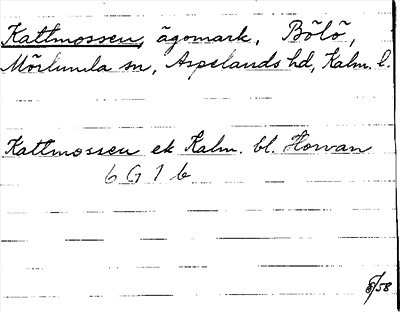 Kattmossen, ägomark, Bölö,
Mörlunda sn, Aspelands hd, Kalm. l.
Kattmossen ek Kalm. bl. Horvan
6 G 1 b
8/58